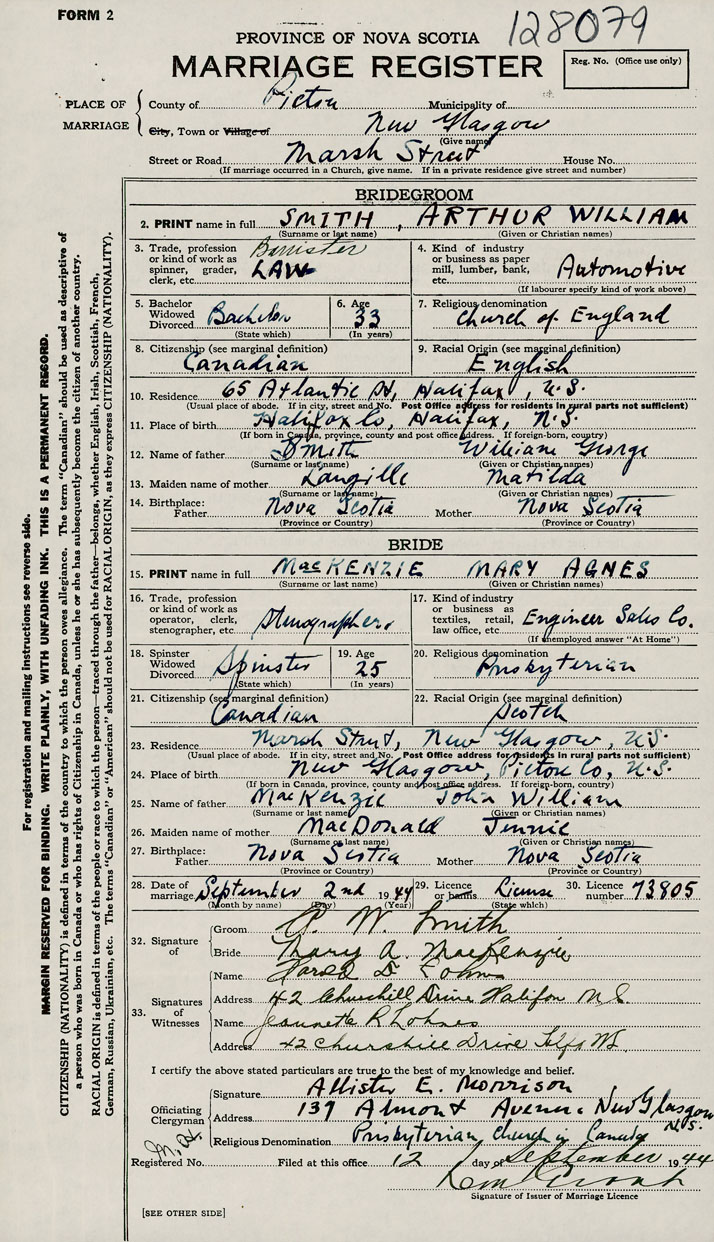 FORM 2
128079
PROVINCE OF NOVA SCOTIA
MARRIAGE REGISTER
Reg. No. (Office use only)
PLACE OF MARRIAGE
County of Pictou Municipality of
City, Town or Village of New Glasgow
(Give name)
Street or Road Marsh Street House No.
(If marriage occurred in a Church, give name. If in a private residence give street and number)
BRIDEGROOM
2. PRINT name in full SMITH, ARTHUR WILLIAM
(Surname or last name) (Given or Christian names)
3. Trade, profession or kind of work as spinner, grader, clerk, etc. Barrister LAW
4. Kind of industry or business as paper mill, lumber, bank, etc. Automotive
(If labourer specify kind of work above)
5. Bachelor Widowed Divorced Bachelor
(State which)
6. Age 33
(In years)
7. Religious denomination Church of England
8. Citizenship (see marginal definition) Canadian
9. Racial Origin (see marginal definition) English
10. Residence 65 Atlantic St, Halifax, N.S.
(Usual place of abode. If in city, street and No. Post Office address for residents in rural parts not sufficient)
11. Place of birth Halifax Co, Halifax, N.S.
(If born in Canada, province, county and post office address. If foreign-born, country)
12. Name of father Smith William George
(Surname or last name) (Given or Christian names)
13. Maiden name of mother Langille Matilda
(Surname or last name) (Given or Christian names)
14. Birthplace: Father Nova Scotia Mother Nova Scotia
(Province or Country) (Province or Country)
BRIDE
15. PRINT name in full MacKENZIE MARY AGNES
(Surname or last name) (Given or Christian names)
16. Trade, profession or kind of work as operator, clerk, stenographer, etc. Stenographer.
17. Kind of industry or business as textiles, retail, law office, etc. Engineer Sales Co.
(If unemployed answer "At Home")
18. Spinster Widowed Divorced Spinster
(State which)
19. Age 25
(In years)
20. Religious denomination Presbyterian
21. Citizenship (see marginal definition) Canadian
22. Racial Origin (see marginal definition) Scotch
23. Residence Marsh Street, New Glasgow, N.S.
(Usual place of abode. If in city, street and No. Post Office address for residents in rural parts not sufficient)
24. Place of birth New Glasgow, Pictou Co, N.S.
(If born in Canada, province, county and post office address. If foreign-born, country)
25. Name of father MacKenzie John William
(Surname or last name) (Given or Christian names)
26. Maiden name of mother MacDonald Jennie
(Surname or last name) (Given or Christian names)
27. Birthplace: Father Nova Scotia Mother Nova Scotia
(Province or Country) (Province or Country)
28. Date of marriage September 2nd 1944
(Month by name) (Day) (Year)
29. Licence or banns License
(State which)
30. Licence number 73805
32. Signature of
Groom A. W. Smith
Bride Mary A. MacKenzie
33. Signatures of Witnesses
Name Harold D Lohnes
Address 42 Churchill Drive Halifax N S.
Name Jeannette R Lohnes
Address 42 Churchill Drive Hlfx NS.
I certify the above stated particulars are true to the best of my knowledge and belief.
Officiating Clergyman
Signature Allister E. Morrison
Address 139 Almont Avenue New Glasgow N.S.
Religious Denomination Presbyterian Church in Canada
Registered No. Filed at this office 12 day of September 1944
Signature of Issuer of Marriage Licence
[SEE OTHER SIDE]
For registration and mailing instructions see reverse side.
MARGIN RESERVED FOR BINDING. WRITE PLAINLY, WITH UNFADING INK. THIS IS A PERMANENT RECORD.
CITIZENSHIP (NATIONALITY) is defined in terms of the country to which the person owes allegiance. The term "Canadian" should be used as descriptive of
a person who was born in Canada or who has rights of Citizenship in Canada, unless he or she has subsequently become the citizen of another country.
RACIAL ORIGIN is defined in terms of the people or race to which the person—traced through the father—belongs, whether English, Irish, Scottish, French,
German, Russian, Ukrainian, etc. The terms "Canadian" or "American" should not be used for RACIAL ORIGIN, as they express CITIZENSHIP (NATIONALITY).